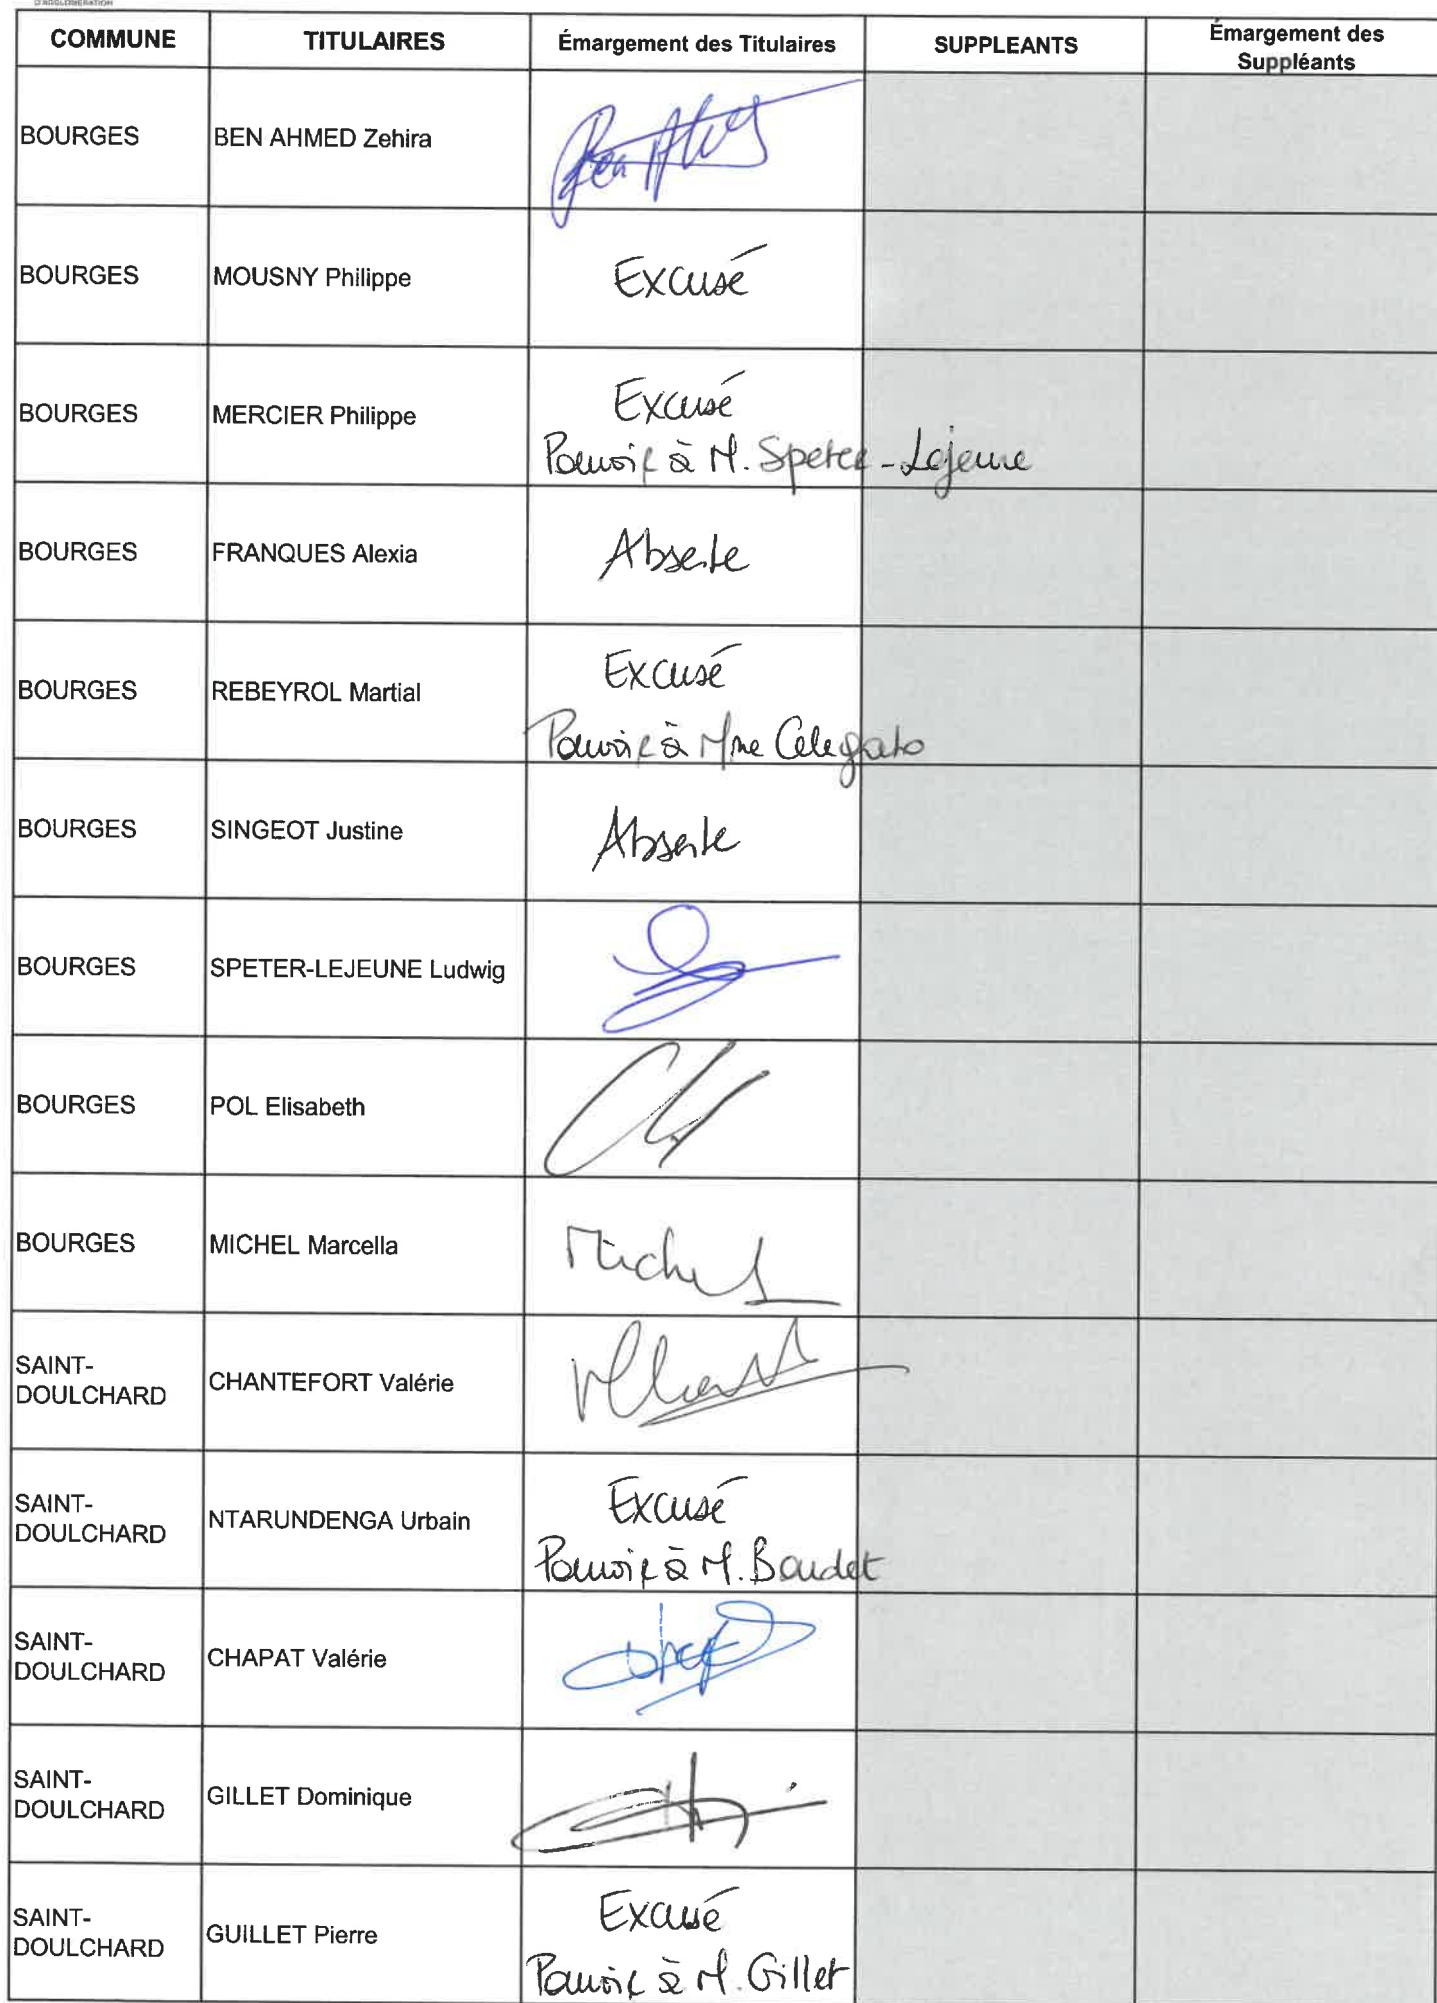 D'AGGLOMERATION
COMMUNE TITULAIRES Émargement des Titulaires SUPPLEANTS Émargement des Suppléants
BOURGES BEN AHMED Zehira
BOURGES MOUSNY Philippe Excusé
BOURGES MERCIER Philippe Excusé
Pouvoir à M. Speter-Lejeune
BOURGES FRANQUES Alexia Absente
BOURGES REBEYROL Martial Excusé
Pouvoir à Mme Celegato
BOURGES SINGEOT Justine Absente
BOURGES SPETER-LEJEUNE Ludwig
BOURGES POL Elisabeth
BOURGES MICHEL Marcella Michel
SAINT-
DOULCHARD CHANTEFORT Valérie
SAINT-
DOULCHARD NTARUNDENGA Urbain Excusé
Pouvoir à M. Boudet
SAINT-
DOULCHARD CHAPAT Valérie
SAINT-
DOULCHARD GILLET Dominique
SAINT-
DOULCHARD GUILLET Pierre Excusé
Pouvoir à M. Gillet